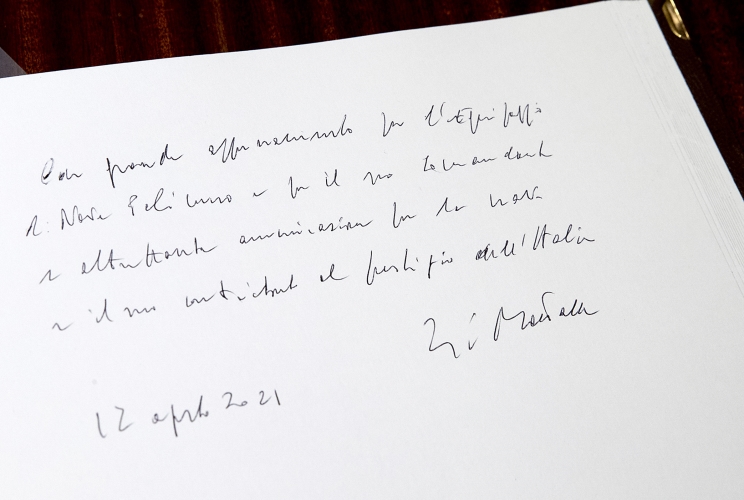 Con grande apprezzamento per l'Equipaggio
di Nave Palinuro e per il suo Comandante
e altrettanta ammirazione per la nave
e il suo contributo al prestigio dell'Italia
12 agosto 2021